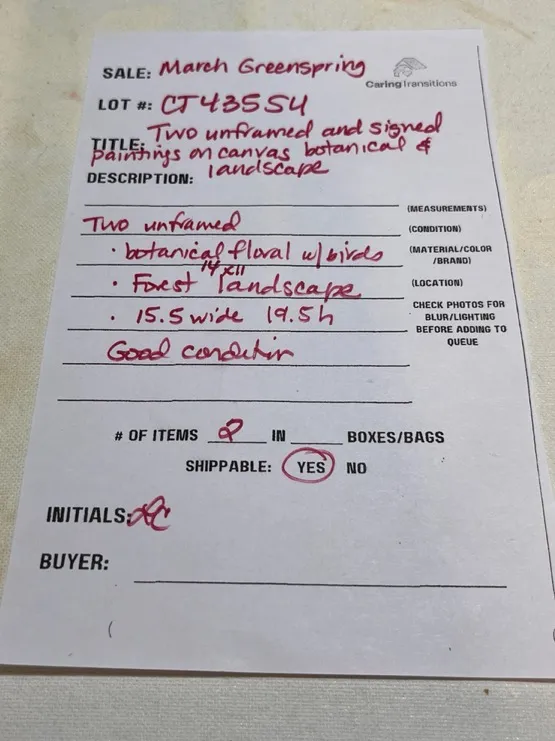 SALE: March Greenspring
CaringTransitions
LOT #: CT43554
TITLE: Two unframed and signed
paintings on canvas botanical &
landscape
DESCRIPTION:
(MEASUREMENTS)
Two unframed
(CONDITION)
· botanical floral w/birds
(MATERIAL/COLOR
/BRAND)
14 x 11
· Forest landscape
(LOCATION)
· 15.5 wide 19.5h
CHECK PHOTOS FOR
BLUR/LIGHTING
BEFORE ADDING TO
QUEUE
Good condition
# OF ITEMS 2 IN BOXES/BAGS
SHIPPABLE: YES NO
INITIALS:
BUYER: